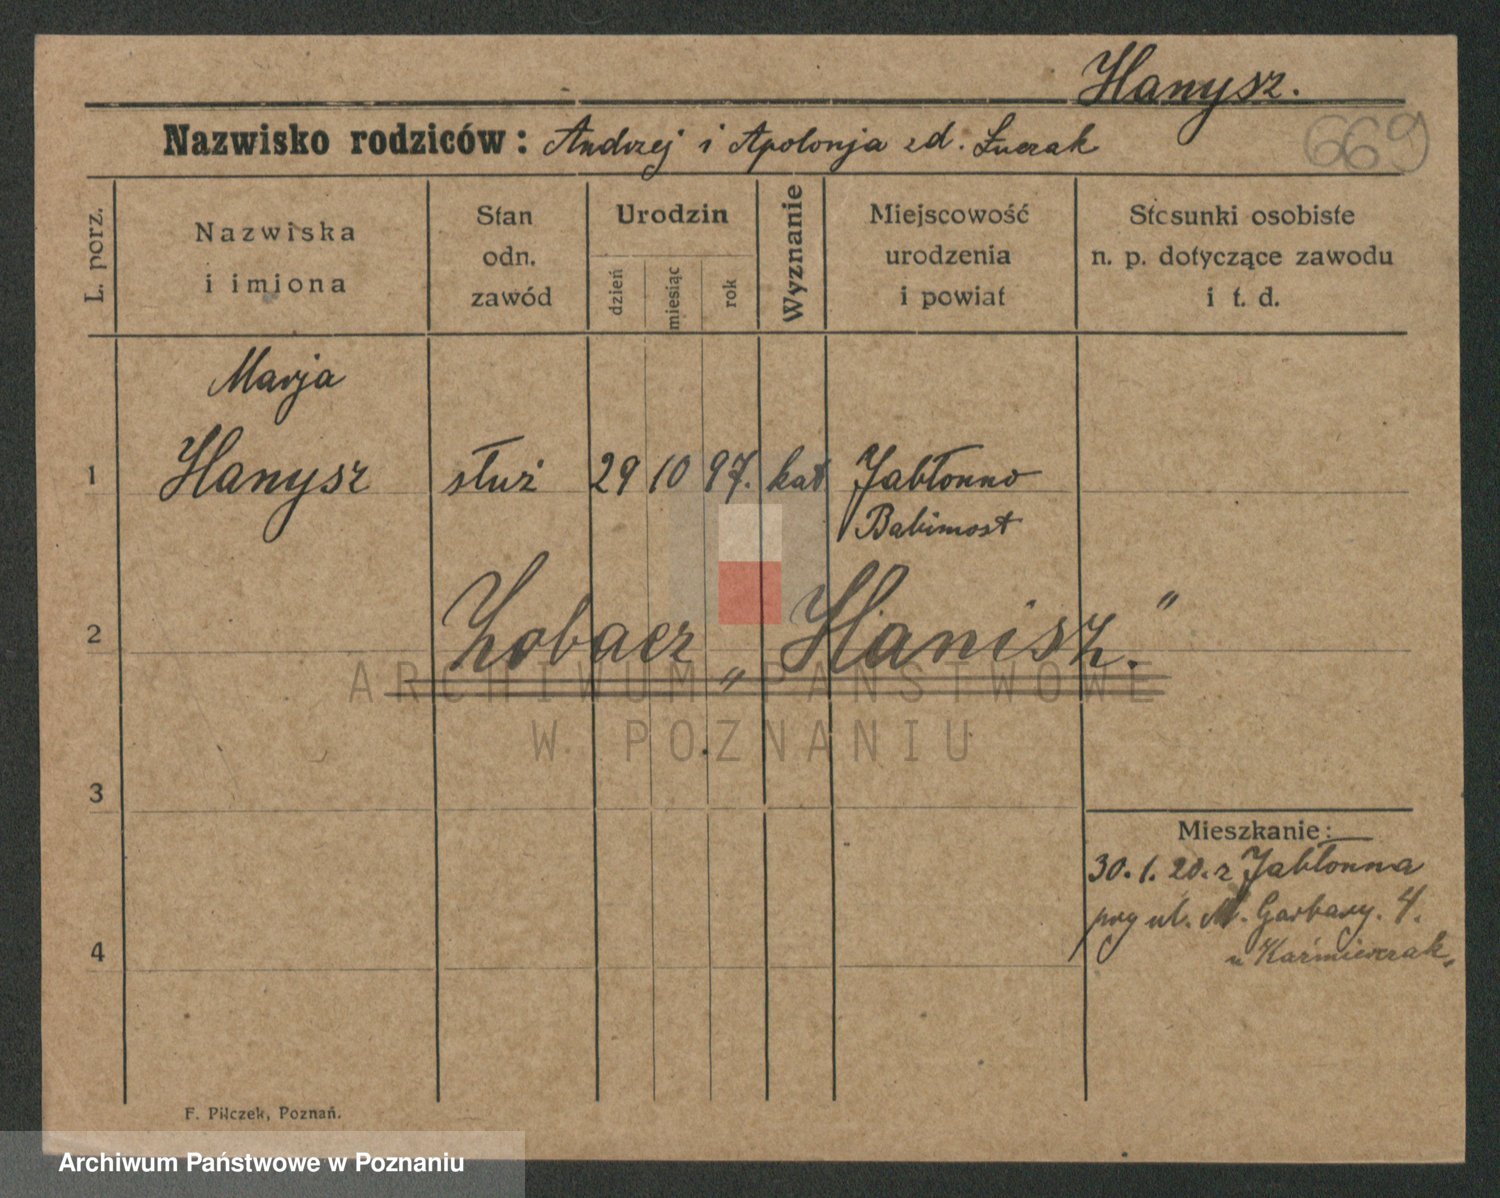 Hanysz.
669
Nazwisko rodziców: Andrzej i Apolonja zd. Łuczak
L. porz.
Nazwiska
i imiona
Stan
odn.
zawód
Urodzin
dzień
miesiąc
rok
Wyznanie
Miejscowość
urodzenia
i powiat
Stosunki osobiste
n. p. dotyczące zawodu
i t. d.
Marja
1 Hanysz służ 29 10 97. kat Jabłonno
Babimost
2 Zobacz „Hanisz."
ARCHIWUM PAŃSTWOWE
W POZNANIU
3
Mieszkanie:
30. 1. 20. z Jabłonna
przy ul. M. Garbary. 4.
4
u Kaźmierczak.
F. Pilczek, Poznań.
Archiwum Państwowe w Poznaniu